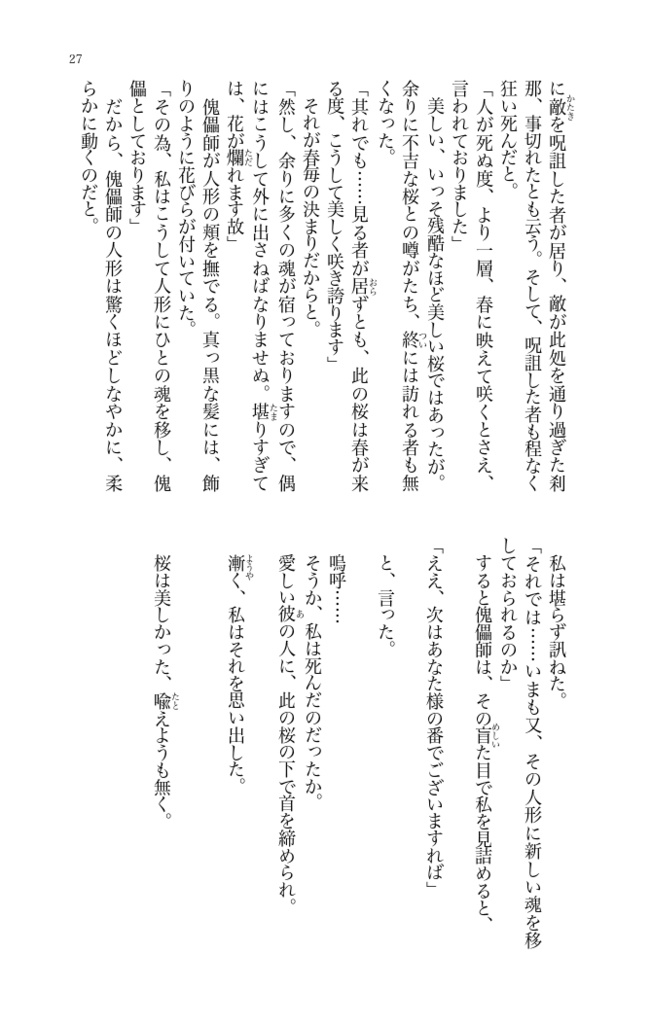 27
に敵を呪詛した者が居り、敵が此処を通り過ぎた刹
那、事切れたとも云う。そして、呪詛した者も程なく
狂い死んだと。
「人が死ぬ度、より一層、春に映えて咲くとさえ、
言われておりました」
美しい、いっそ残酷なほど美しい桜ではあったが。
余りに不吉な桜との噂がたち、終には訪れる者も無
くなった。
「其れでも……見る者が居ずとも、此の桜は春が来
る度、こうして美しく咲き誇ります」
それが春毎の決まりだからと。
「然し、余りに多くの魂が宿っておりますので、偶
にはこうして外に出さねばなりませぬ。堪りすぎて
は、花が爛れます故」
傀儡師が人形の頬を撫でる。真っ黒な髪には、飾
りのように花びらが付いていた。
「その為、私はこうして人形にひとの魂を移し、傀
儡としております」
だから、傀儡師の人形は驚くほどしなやかに、柔
らかに動くのだと。
私は堪らず訊ねた。
「それでは……いまも又、その人形に新しい魂を移
しておられるのか」
すると傀儡師は、その盲た目で私を見詰めると、
「ええ、次はあなた様の番でございますれば」
と、言った。
嗚呼……
そうか、私は死んだのだったか。
愛しい彼の人に、此の桜の下で首を締められ。
漸く、私はそれを思い出した。
桜は美しかった、喩えようも無く。